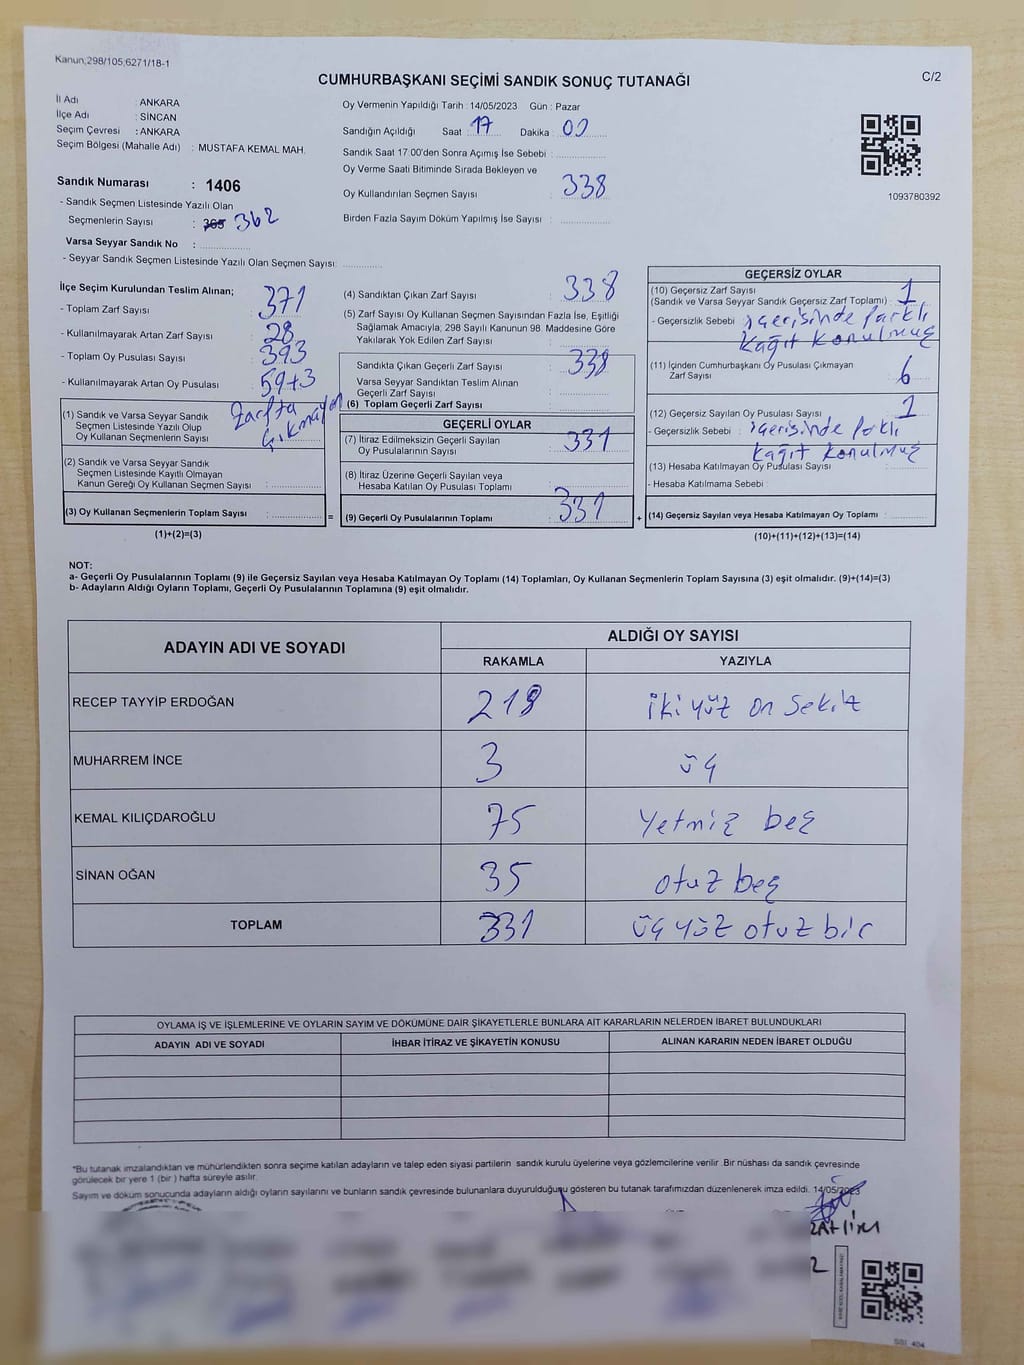 Kanun;298/105;6271/18-1
CUMHURBAŞKANI SEÇİMİ SANDIK SONUÇ TUTANAĞI
C/2
İl Adı : ANKARA
İlçe Adı : SİNCAN
Seçim Çevresi : ANKARA
Seçim Bölgesi (Mahalle Adı) : MUSTAFA KEMAL MAH.
Oy Vermenin Yapıldığı Tarih : 14/05/2023 Gün : Pazar
Sandığın Açıldığı Saat : 17 Dakika : 00
Sandık Saat 17:00'den Sonra Açımış İse Sebebi :
Oy Verme Saati Bitiminde Sırada Bekleyen ve
Oy Kullandırılan Seçmen Sayısı : 338
Birden Fazla Sayım Döküm Yapılmış İse Sayısı :
1093780392
Sandık Numarası : 1406
- Sandık Seçmen Listesinde Yazılı Olan
Seçmenlerin Sayısı : 365 362
Varsa Seyyar Sandık No :
- Seyyar Sandık Seçmen Listesinde Yazılı Olan Seçmen Sayısı:
İlçe Seçim Kurulundan Teslim Alınan;
- Toplam Zarf Sayısı : 371
- Kullanılmayarak Artan Zarf Sayısı : 28
- Toplam Oy Pusulası Sayısı : 393
- Kullanılmayarak Artan Oy Pusulası : 59+3
Zarfta
Çıkmayan
(1) Sandık ve Varsa Seyyar Sandık
Seçmen Listesinde Yazılı Olup
Oy Kullanan Seçmenlerin Sayısı :
(2) Sandık ve Varsa Seyyar Sandık
Seçmen Listesinde Kayıtlı Olmayan
Kanun Gereği Oy Kullanan Seçmen Sayısı :
(3) Oy Kullanan Seçmenlerin Toplam Sayısı : =
(1)+(2)=(3)
(4) Sandıktan Çıkan Zarf Sayısı : 338
(5) Zarf Sayısı Oy Kullanan Seçmen Sayısından Fazla İse, Eşitliği
Sağlamak Amacıyla; 298 Sayılı Kanunun 98. Maddesine Göre
Yakılarak Yok Edilen Zarf Sayısı :
Sandıkta Çıkan Geçerli Zarf Sayısı : 338
Varsa Seyyar Sandıktan Teslim Alınan
Geçerli Zarf Sayısı :
(6) Toplam Geçerli Zarf Sayısı :
GEÇERLİ OYLAR
(7) İtiraz Edilmeksizin Geçerli Sayılan
Oy Pusulalarının Sayısı : 331
(8) İtiraz Üzerine Geçerli Sayılan veya
Hesaba Katılan Oy Pusulası Toplamı :
(9) Geçerli Oy Pusulalarının Toplamı : 331 +
GEÇERSİZ OYLAR
(10) Geçersiz Zarf Sayısı
(Sandık ve Varsa Seyyar Sandık Geçersiz Zarf Toplamı) : 1
- Geçersizlik Sebebi : içerisinde farklı
kağıt konulmuş
(11) İçinden Cumhurbaşkanı Oy Pusulası Çıkmayan
Zarf Sayısı : 6
(12) Geçersiz Sayılan Oy Pusulası Sayısı : 1
- Geçersizlik Sebebi : içerisinde farklı
kağıt konulmuş
(13) Hesaba Katılmayan Oy Pusulası Sayısı :
- Hesaba Katılmama Sebebi :
(14) Geçersiz Sayılan veya Hesaba Katılmayan Oy Toplamı :
(10)+(11)+(12)+(13)=(14)
NOT:
a- Geçerli Oy Pusulalarının Toplamı (9) ile Geçersiz Sayılan veya Hesaba Katılmayan Oy Toplamı (14) Toplamları, Oy Kullanan Seçmenlerin Toplam Sayısına (3) eşit olmalıdır. (9)+(14)=(3)
b- Adayların Aldığı Oyların Toplamı, Geçerli Oy Pusulalarının Toplamına (9) eşit olmalıdır.
ADAYIN ADI VE SOYADI ALDIĞI OY SAYISI
RAKAMLA YAZIYLA
RECEP TAYYİP ERDOĞAN 218 iki yüz on sekiz
MUHARREM İNCE 3 üç
KEMAL KILIÇDAROĞLU 75 yetmiş beş
SİNAN OĞAN 35 otuz beş
TOPLAM 331 üç yüz otuz bir
OYLAMA İŞ VE İŞLEMLERİNE VE OYLARIN SAYIM VE DÖKÜMÜNE DAİR ŞİKAYETLERLE BUNLARA AİT KARARLARIN NELERDEN İBARET BULUNDUKLARI
ADAYIN ADI VE SOYADI İHBAR İTİRAZ VE ŞİKAYETİN KONUSU ALINAN KARARIN NEDEN İBARET OLDUĞU
*Bu tutanak imzalandıktan ve mühürlendikten sonra seçime katılan adayların ve talep eden siyasi partilerin sandık kurulu üyelerine veya gözlemcilerine verilir. Bir nüshası da sandık çevresinde
görülecek bir yere 1 (bir) hafta süreyle asılır.
Sayım ve döküm sonucunda adayların aldığı oyların sayılarını ve bunların sandık çevresinde bulunanlara duyurulduğunu gösteren bu tutanak tarafımızdan düzenlenerek imza edildi. 14/05/2023